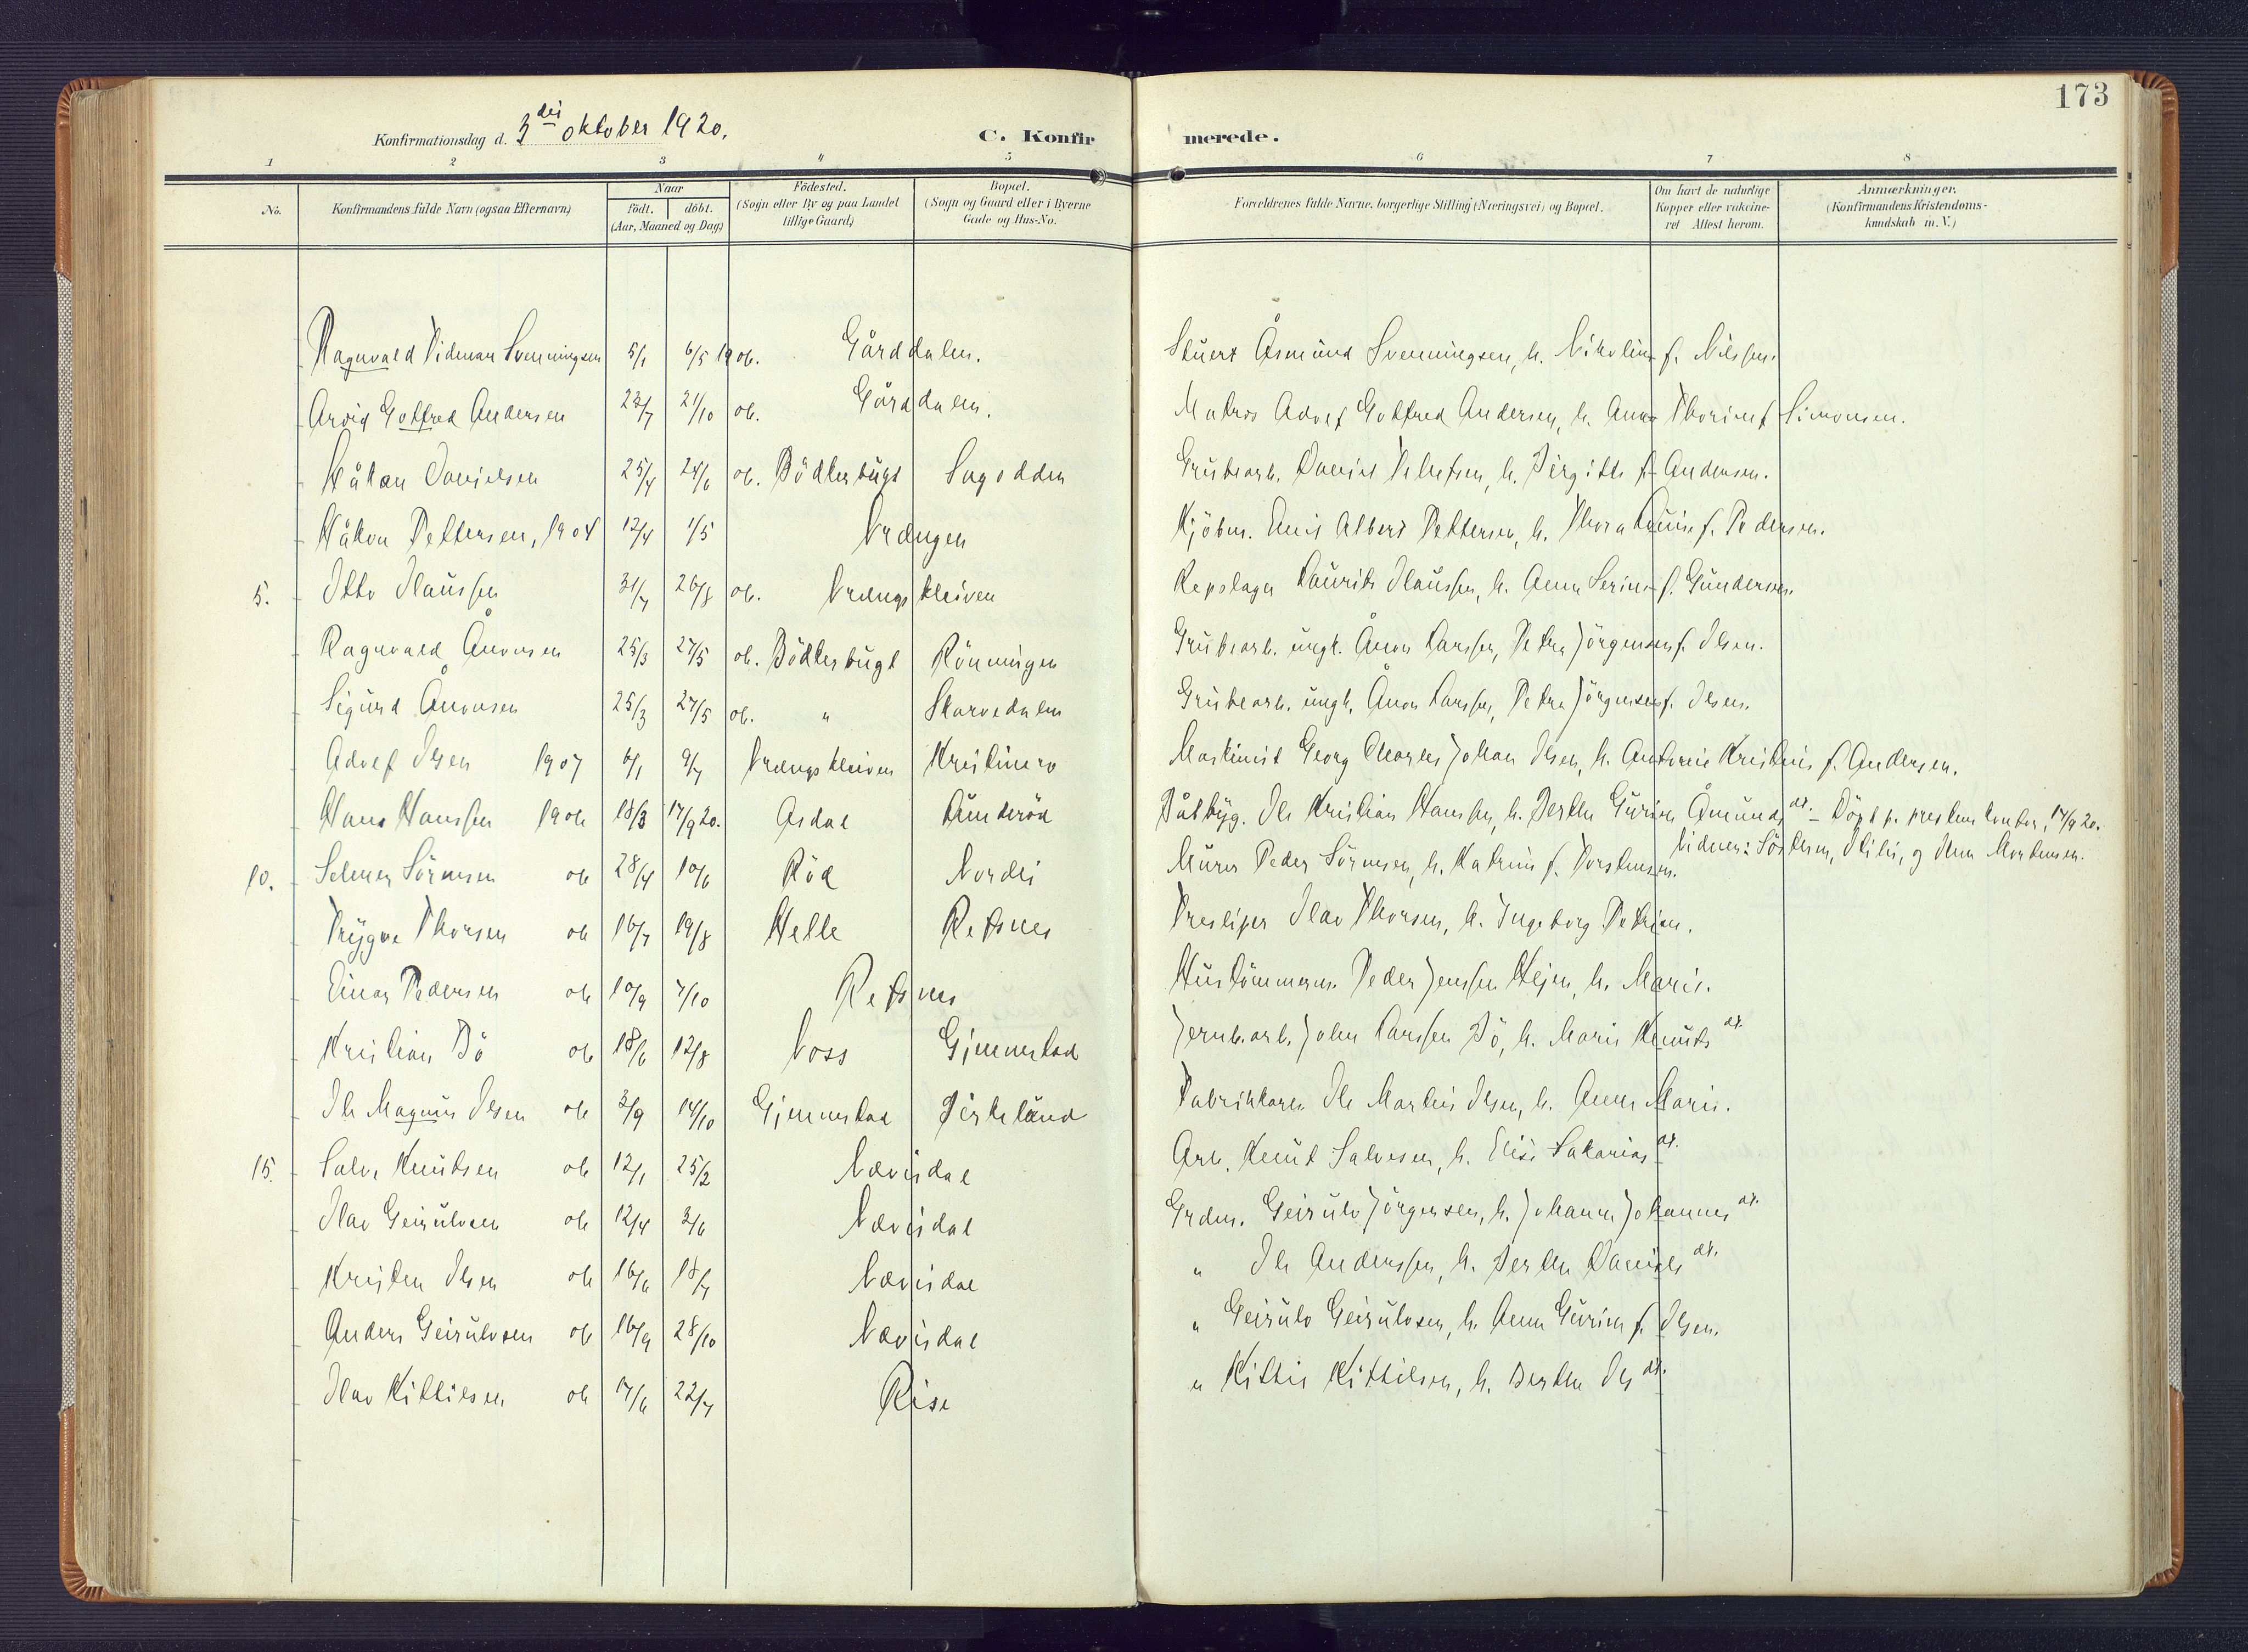 173
Konfirmationsdag d. 3die oktober 1920.
C. Konfirmerede.
1 2 3 4 5 6 7 8
No.
Konfirmandens fulde Navn (ogsaa Efternavn)
Naar
födt. döbt.
(Aar, Maaned og Dag)
Födested.
(Sogn eller By og paa Landet
tillige Gaard)
Bopæl.
(Sogn og Gaard eller i Byerne
Gade og Hus-No.
Forældrenes fulde Navne, borgerlige Stilling (Næringsvei) og Bopæl.
Om havt de naturlige
Kopper eller vakcine-
ret Attest herom.
Anmærkninger.
(Konfirmandens Kristendoms-
kundskab m. V.)
Ragnvald Vidman Svenningsen 5/1 6/5 1906. Gårddalen. Stuert Åsmund Svenningsen, h. Nikoline f. Nilssen.
Arvid Gotfred Andersen 22/7 21/10 06. Gårddalen. Matros Adolf Gotfred Andersen, h. Anna Thorine f. Simonsen.
Håkon Danielsen 25/4 24/6 06. Bödkerbugt Sagodden Grubearb. Daniel h. Birgitte f. Andersen.
Håkon Pettersen, 1904 12/4 1/5 Vrængen Kjöbm. Emil Albert Pettersen, h. Thora Louise f. Pedersen.
5. Otto Olaussen 31/7 26/8 06. Vrængskleiven Repslager Laurits Olaussen, h. Anna Serine f. Gundersen.
Ragnvald Ånonsen 25/3 27/5 06. Bödkerbugt Rönningen Grubearb. ungk. Ånon Larssen, Petra Jörgensen f. Olsen.
Sigurd Ånonsen 25/3 27/5 06. " Skarvedalen Grubearb. ungk. Ånon Larssen, Petra Jörgensen f. Olsen.
Adolf Olsen 1907 6/1 9/7 Vrængskleiven Kristinero Maskinist Georg Charles Johan Olsen, h. Antonie Kristine f. Andersen.
Hans Hanssen 1906 18/3 17/9 20. Asdal Lunderöd Båtbyg. Ole Kristian Hanssen, h. Berthe Gurine Åmunds dt. – Döpt p. prestens kontor, 17/9 20.
Vidner: og Mortensen.
10. Selmer Sörensen 06 28/4 10/6 Röd Nordli Murer Peder Sörensen, h. Katrine f. Torstensen.
Trygve Thorsen 06 16/7 19/8 Helle Refsnes Træsliper Olav Thorsen, h. Ingeborg Petrine.
Einar Pedersen 06 10/9 7/10 Refsnes Hustömmerm. Peder Jenssen h. Marie.
Kristian Bö 06 18/6 12/8 Voss Gjennestad Jernb.arb. John Larssen Bö, h. Marie Knuts dt.
Ole Magnus Olsen 06 3/9 14/10 Gjennestad Birkeland Fabrikkarb. Ole Martin Olsen, h. Anna Marie.
15. Salve Knutsen 06 12/1 25/2 Nævisdal Arb. Knut Salvesen, h. Elise Sakarias dt.
Olav Geirulvsen 06 12/4 3/6 Nævisdal Grdm. Geirulv Jörgensen, h. Johanne Johannes dt.
Kristen Olsen 06 16/6 18/7 Nævisdal " Ole Anderssen, h. Berthe Daniels dt.
Anders Geirulvsen 06 16/9 28/10 Nævisdal " Geirulv Geirulvsen, h. Anna Gurine f. Olsen.
Olav Kittilsen 06 7/6 22/7 Rise " Kittil Kittilsen, h. Berthe Ols dt.